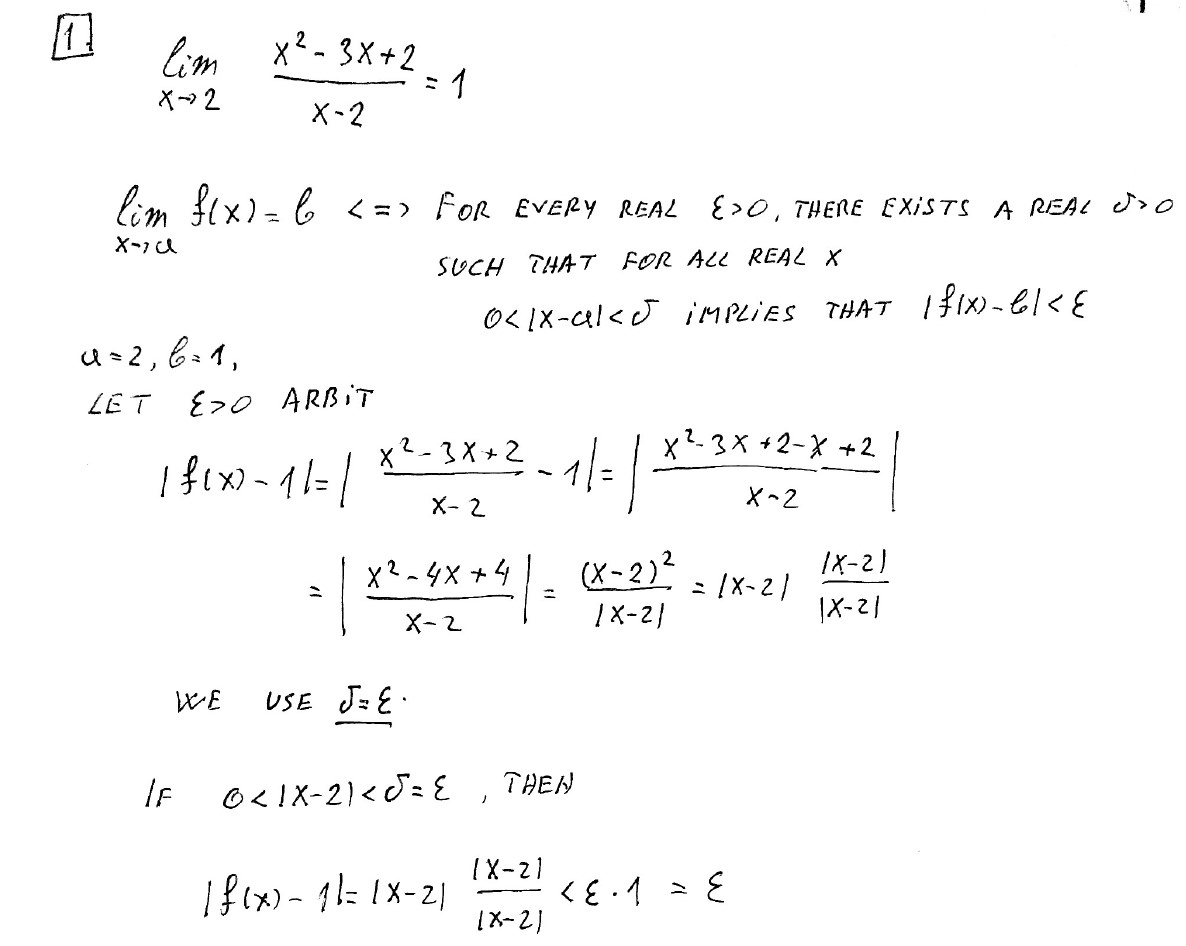 1.
lim x→2 (x² - 3x + 2)/(x - 2) = 1
lim x→a f(x) = b <=> FOR EVERY REAL ε>0, THERE EXISTS A REAL δ>0
SUCH THAT FOR ALL REAL X
0<|x-a|<δ IMPLIES THAT |f(x)-b|<ε
a=2, b=1,
LET ε>0 ARBIT
|f(x)-1|=| (x²-3x+2)/(x-2) - 1|=| (x²-3x+2-x+2)/(x-2) |
= | (x²-4x+4)/(x-2) | = (x-2)²/|x-2| = |x-2| |x-2|/|x-2|
WE USE δ=ε.
IF 0<|x-2|<δ=ε, THEN
|f(x)-1|=|x-2| |x-2|/|x-2| <ε·1 = ε